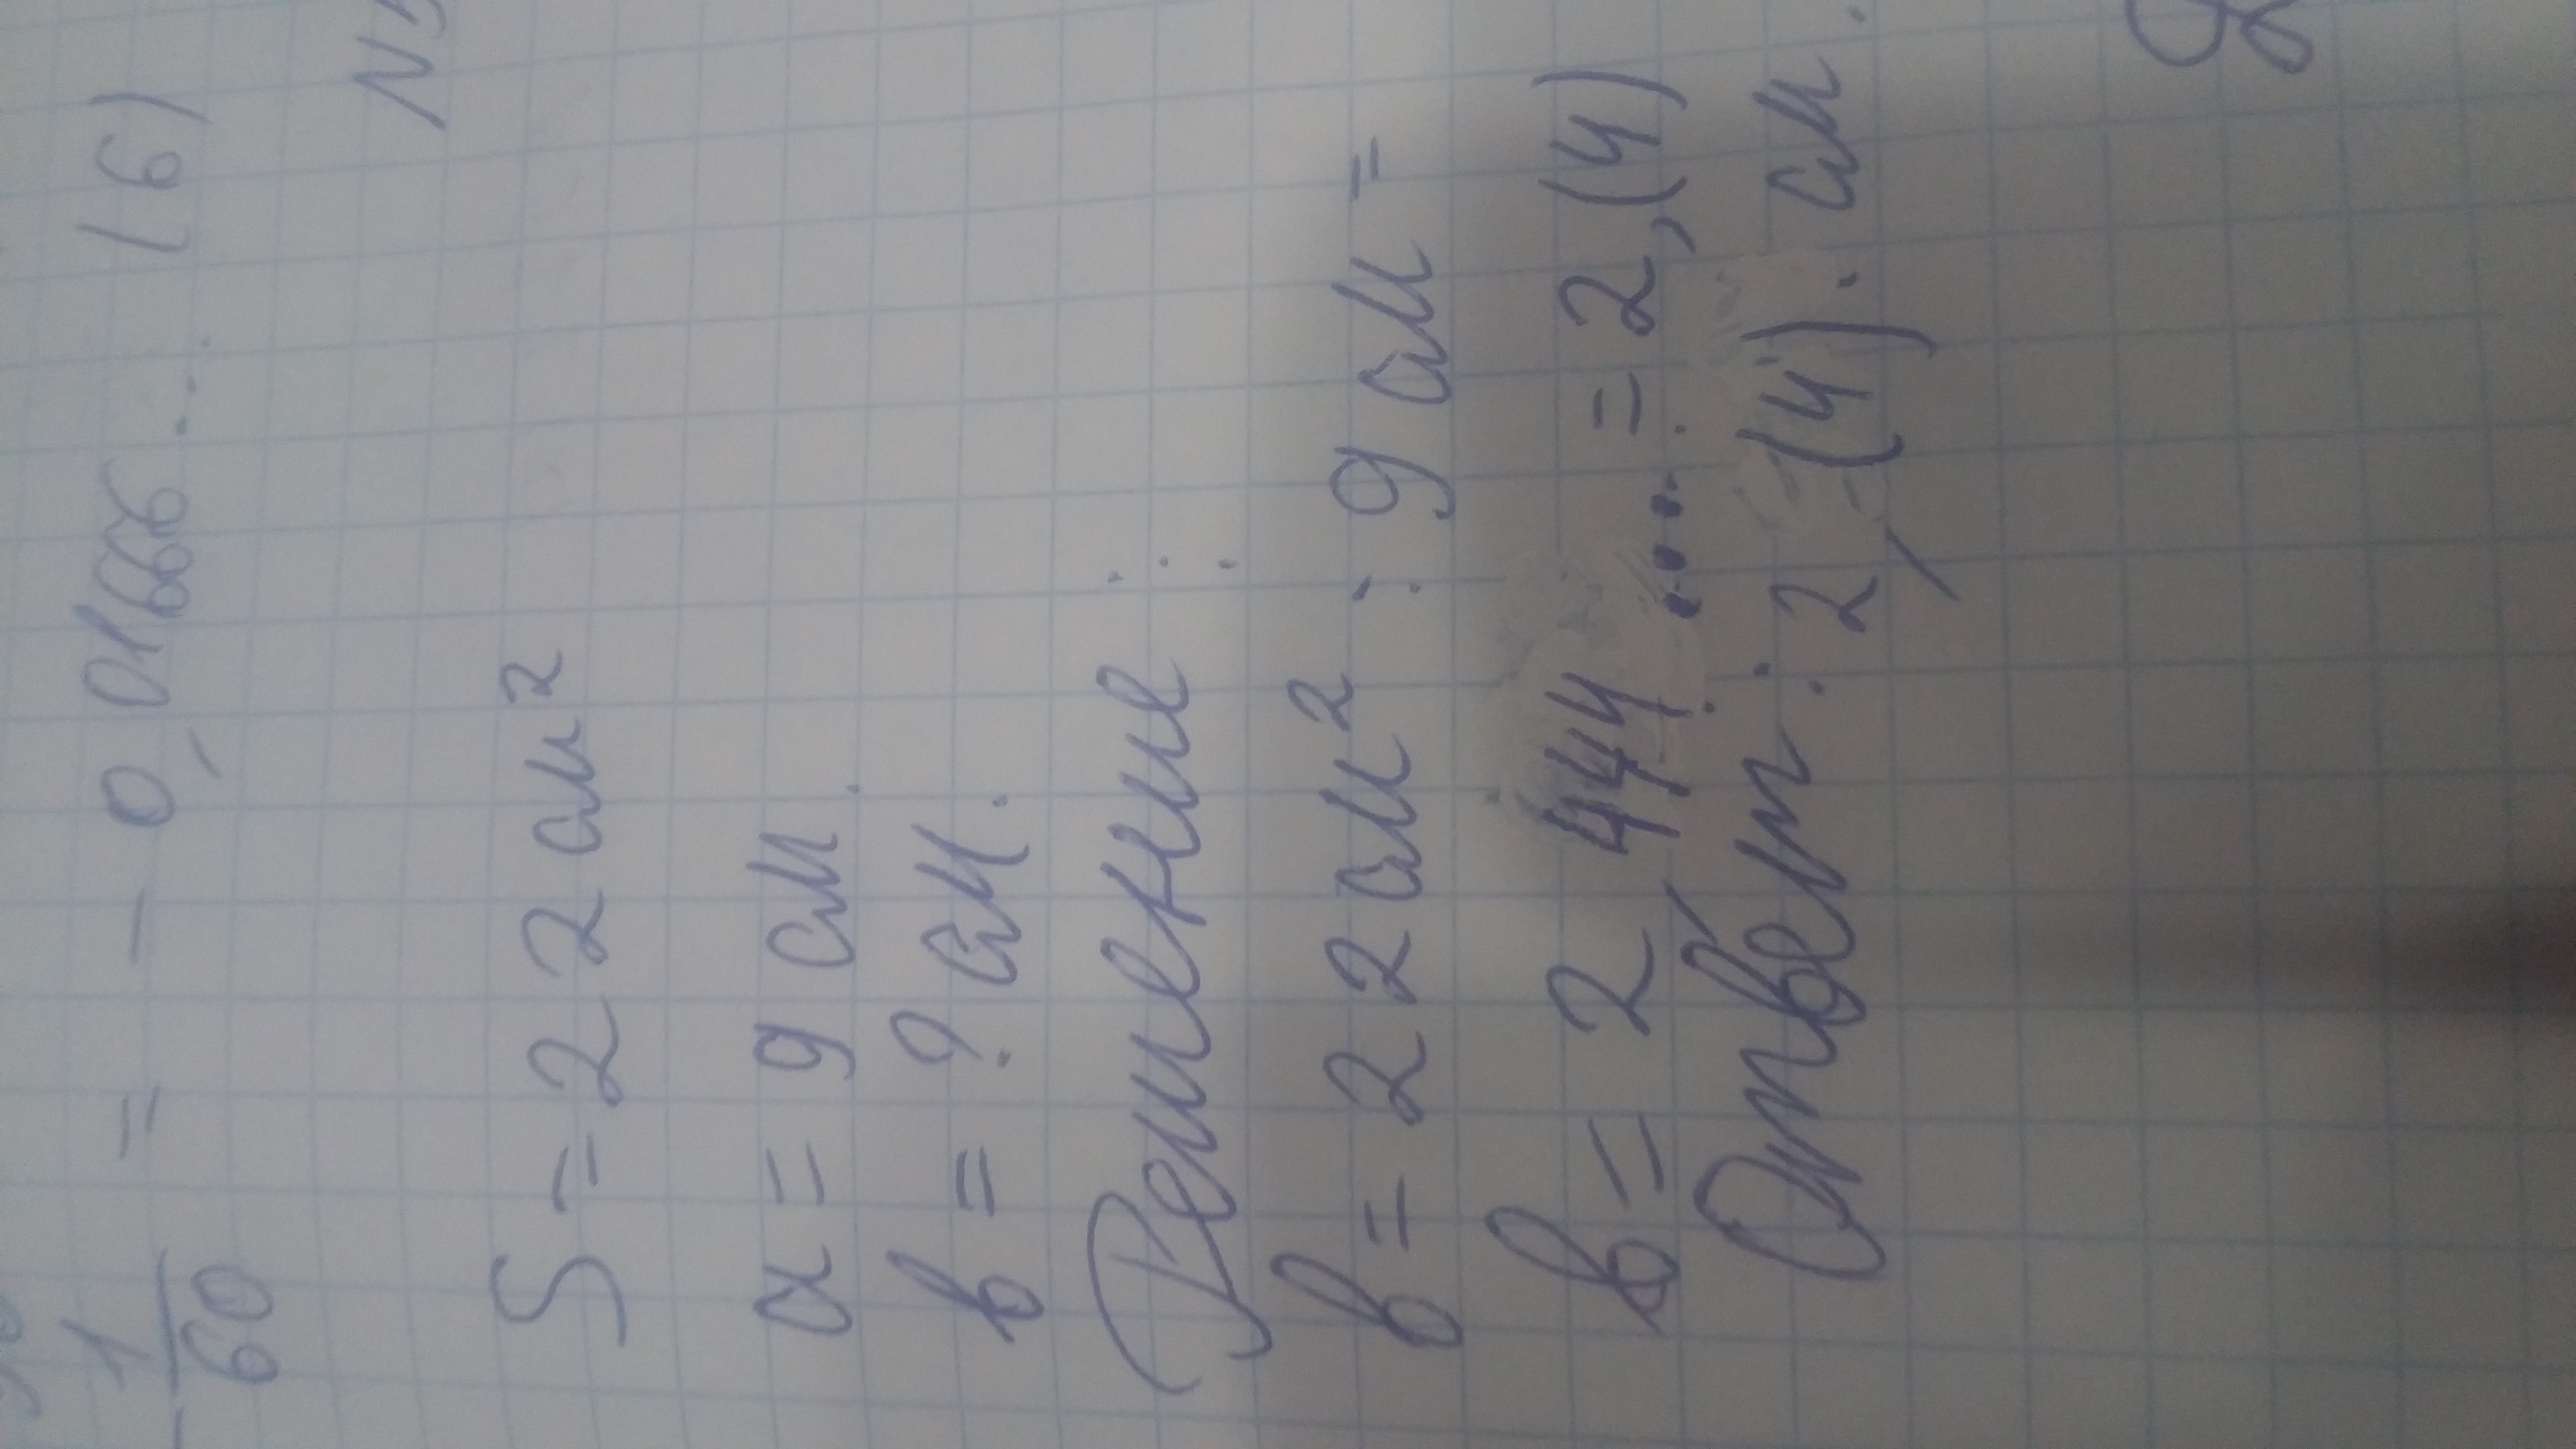 - 1/60 = - 0,01666... (6)
N
S = 22 см²
a = 9 см.
b = ? см.
Решение :
b = 22 см² : 9 см =
b = 2,444... = 2,(4)
Ответ: 2,(4). см.